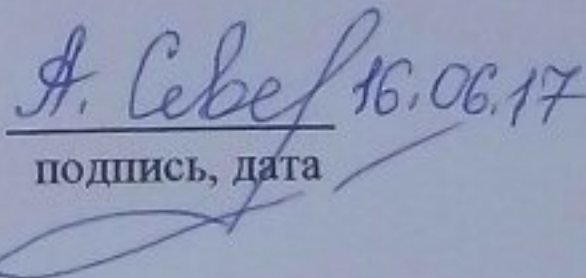 А. Север 16.06.17
подпись, дата